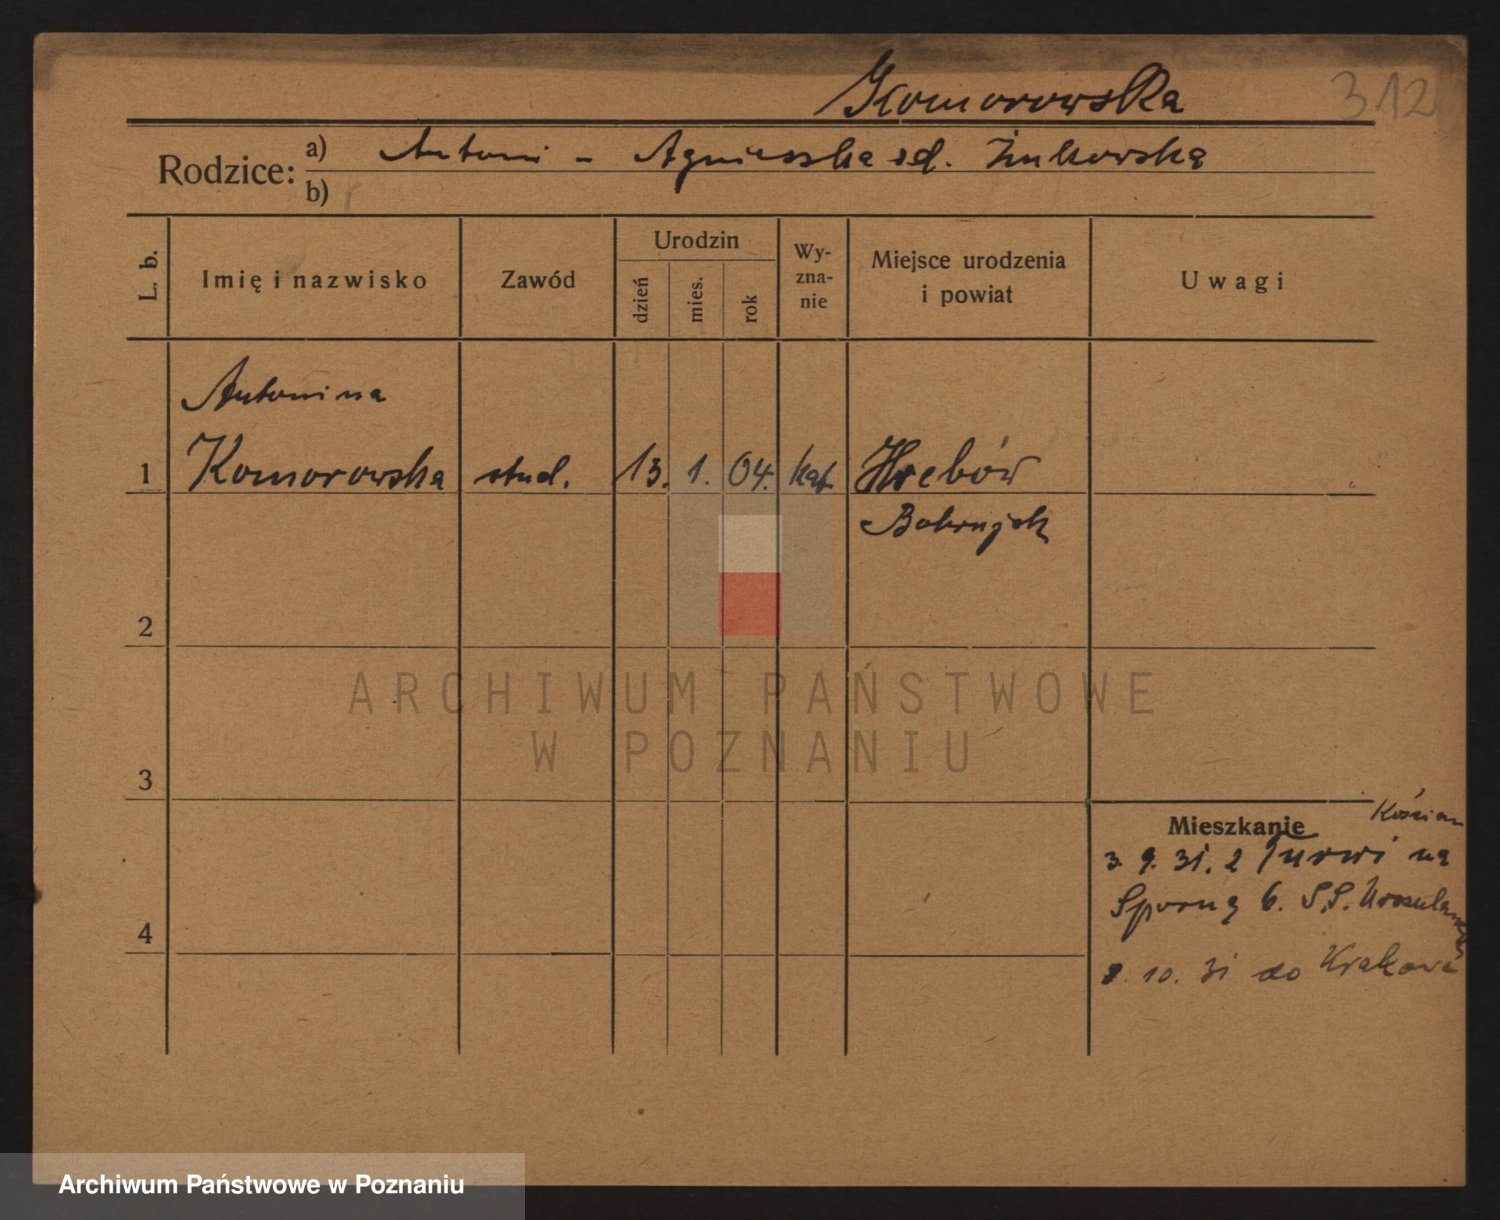 Komorowska 312
Rodzice: a) Antoni - Agnieszka zd. Żukowska
b)
L. b. Imię i nazwisko Zawód Urodzin dzień mies. rok Wy-zna-nie Miejsce urodzenia i powiat Uwagi
Antonina
1 Komorowska stud. 13. 1. 04. kat. Hrebów
Bobrujsk
2
ARCHIWUM PAŃSTWOWE
W POZNANIU
3
Mieszkanie Kościan
3. 9. 31. z Turwi na
Sporną 6. S.S. Urszulanki
4
10. 31 do Krakowa
Archiwum Państwowe w Poznaniu